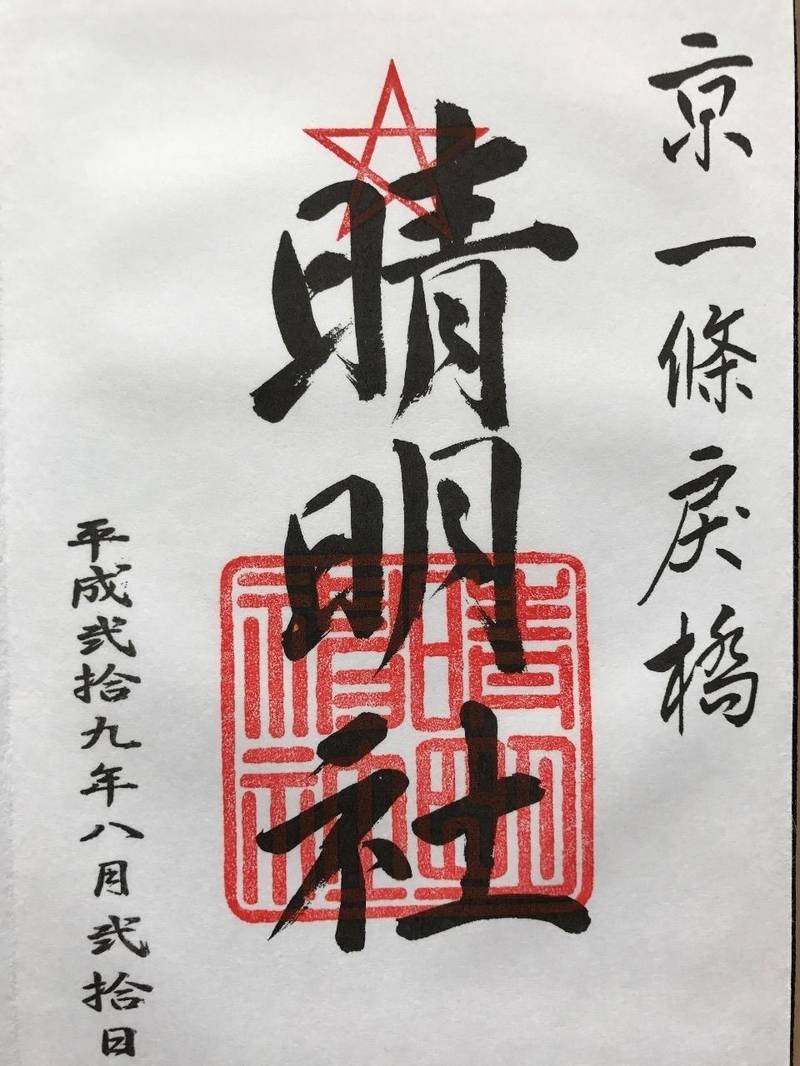 京一條戻橋
晴明社
晴明
神社
平成弐拾九年八月弐拾日